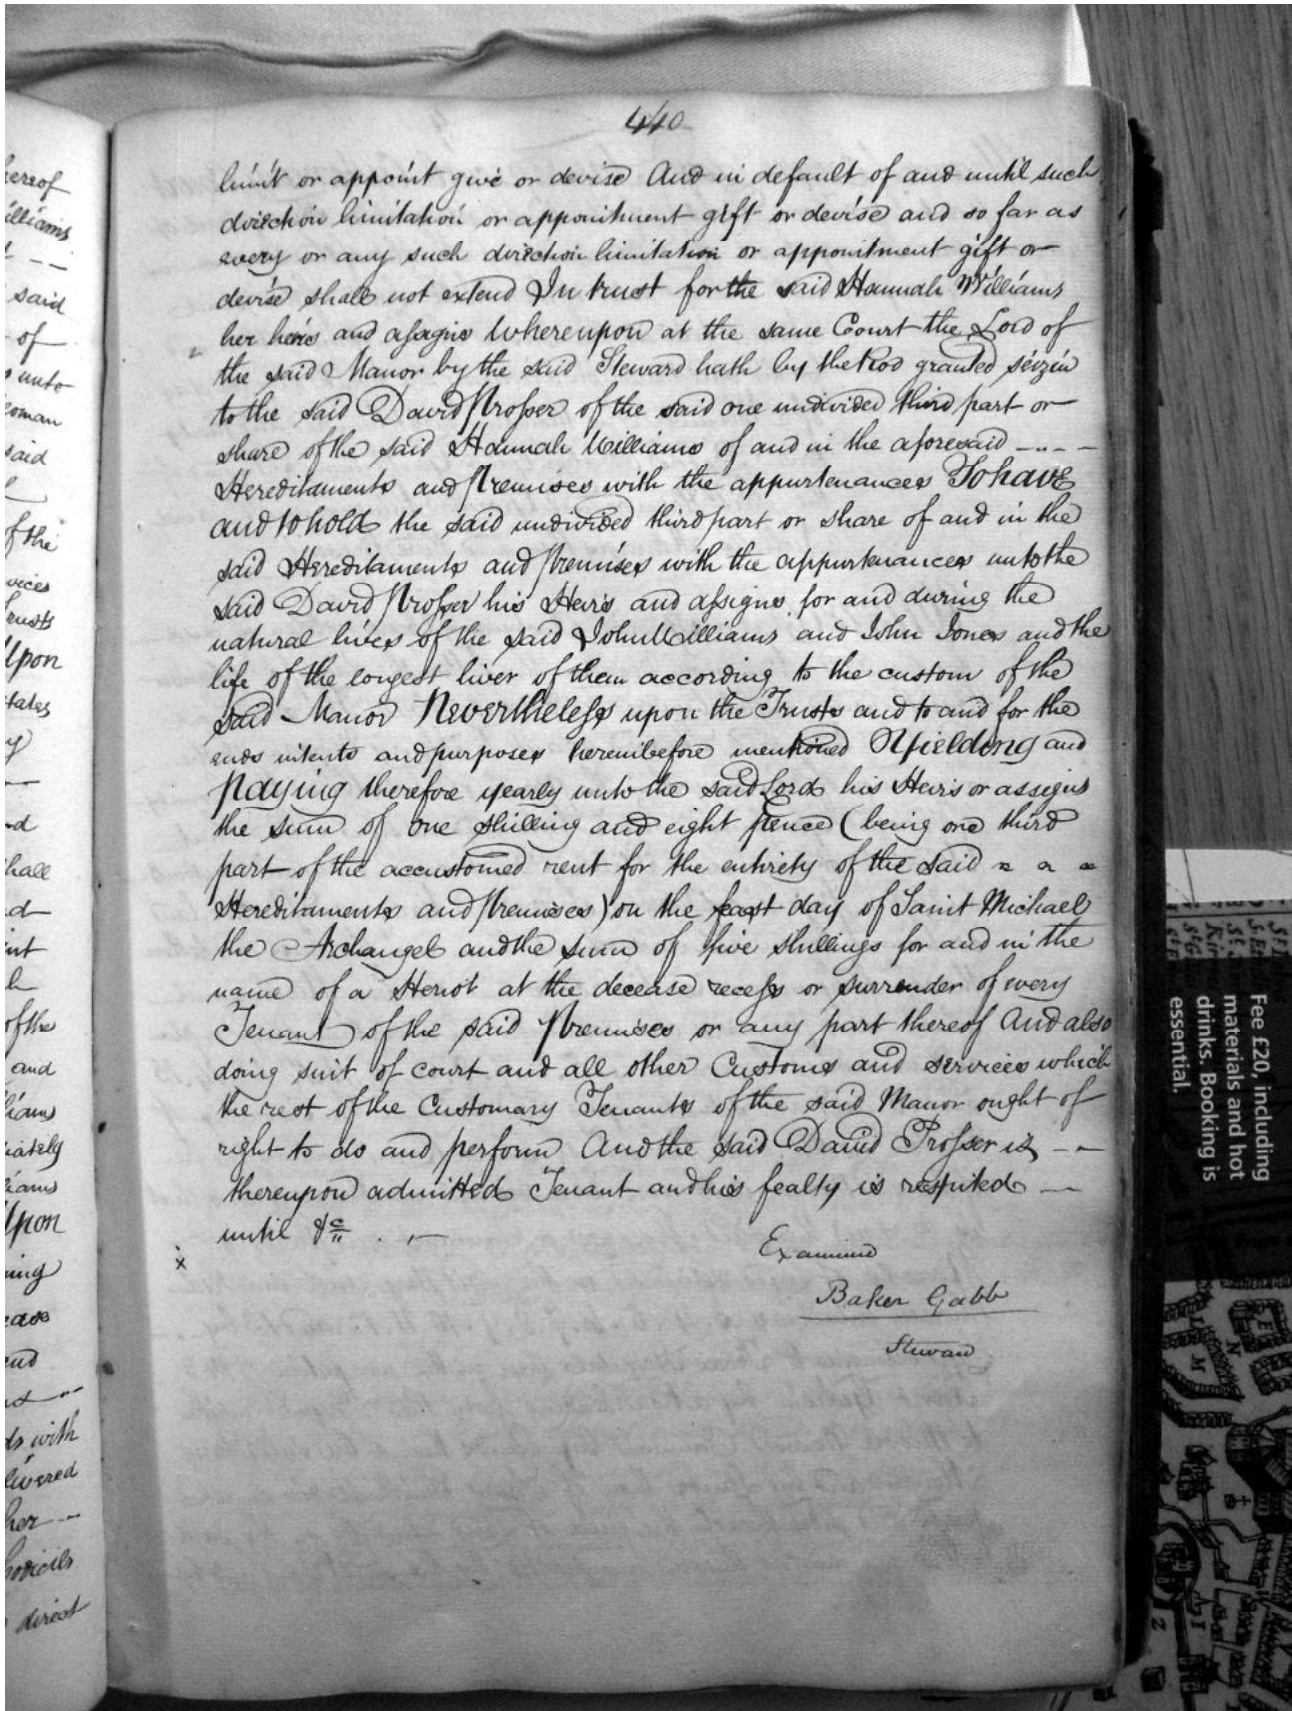 440
limit or appoint give or devise And in default of and until such
direction limitation or appointment gift or devise and so far as
every or any such direction limitation or appointment gift or
devise shall not extend In trust for the said Hannah Williams
her heirs and assigns Whereupon at the same Court the Lord of
the said Manor by the said Steward hath by the Rod granted seizin
to the said David Prosser of the said one undivided third part or
share of the said Hannah Williams of and in the aforesaid
Hereditaments and Premises with the appurtenances To have
and to hold the said undivided third part or share of and in the
said Hereditaments and Premises with the appurtenances unto the
said David Prosser his Heirs and assigns for and during the
natural lives of the said John Williams and John Jones and the
life of the longest liver of them according to the custom of the
said Manor Nevertheless upon the Trusts and to and for the
ends intents and purposes hereinbefore mentioned Yielding and
Paying therefore yearly unto the said Lord his Heirs or assigns
the sum of one shilling and eight pence (being one third
part of the accustomed rent for the entirety of the said
Hereditaments and Premises) on the feast day of Saint Michael
the Archangel and the sum of five shillings for and in the
name of a Heriot at the decease recess or surrender of every
Tenant of the said Premises or any part thereof And also
doing suit of court and all other Customs and services which
the rest of the Customary Tenants of the said Manor ought of
right to do and perform And the said David Prosser is
thereupon admitted Tenant and his fealty is respited
until &c
Examined
Baker Gabb
Steward
hereof
Williams
said
of
unto
said
of the
vices
Trusts
Upon
hall
of the
and
Upon
ds with
her
direct
Fee £20, including
materials and hot
drinks. Booking is
essential.